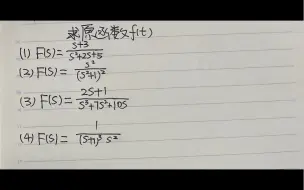 求原函数f(t)
(1) F(S)=\frac{S+3}{S²+2S+5}
(2) F(S)=\frac{S²}{(S²+1)²}
(3) F(S)=\frac{2S+1}{S³+7S²+10S}
(4) F(S)=\frac{1}{(S+1)³ S²}